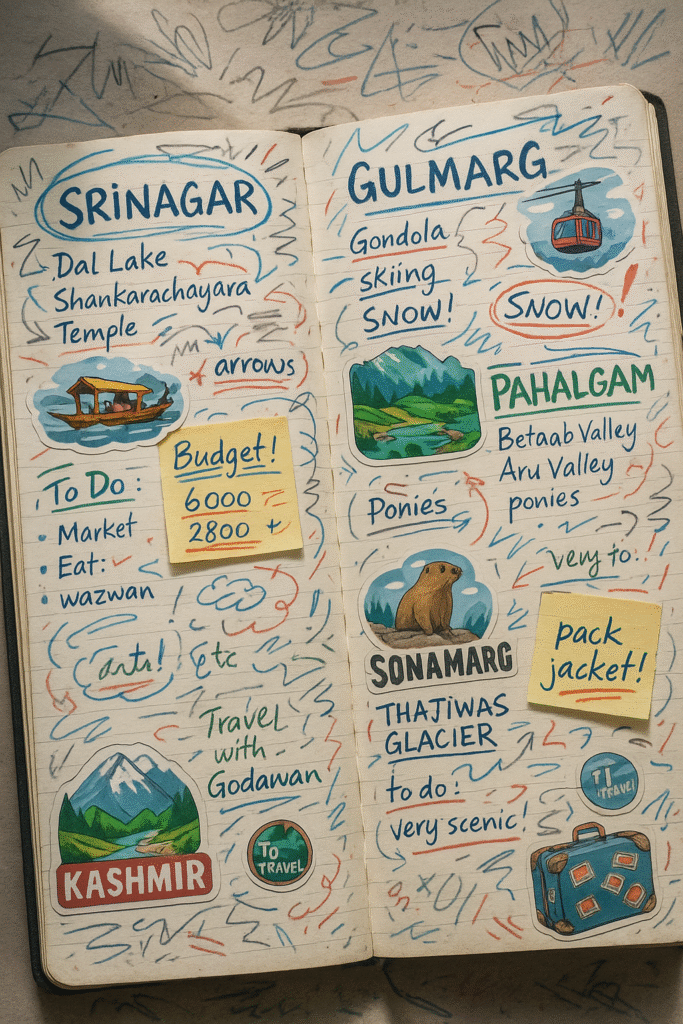 SRiNAGAR
Dal Lake
Shankarachayara
Temple
arrows
Budget!
6000
2800 +
To Do :
• Market
• Eat:
• wazwan
arts! etc
Travel
with
Godawan
KASHMIR
TO
TRAVEL
GULMARG
Gondola
skiing
SNOW!
SNOW!!
PAHALGAM
Betaab Valley
Aru Valley
ponies
Ponies
very to..
SONAMARG
pack
jacket!
THAJIWAS
GLACIER
to do :
very scenic!
TRAVEL